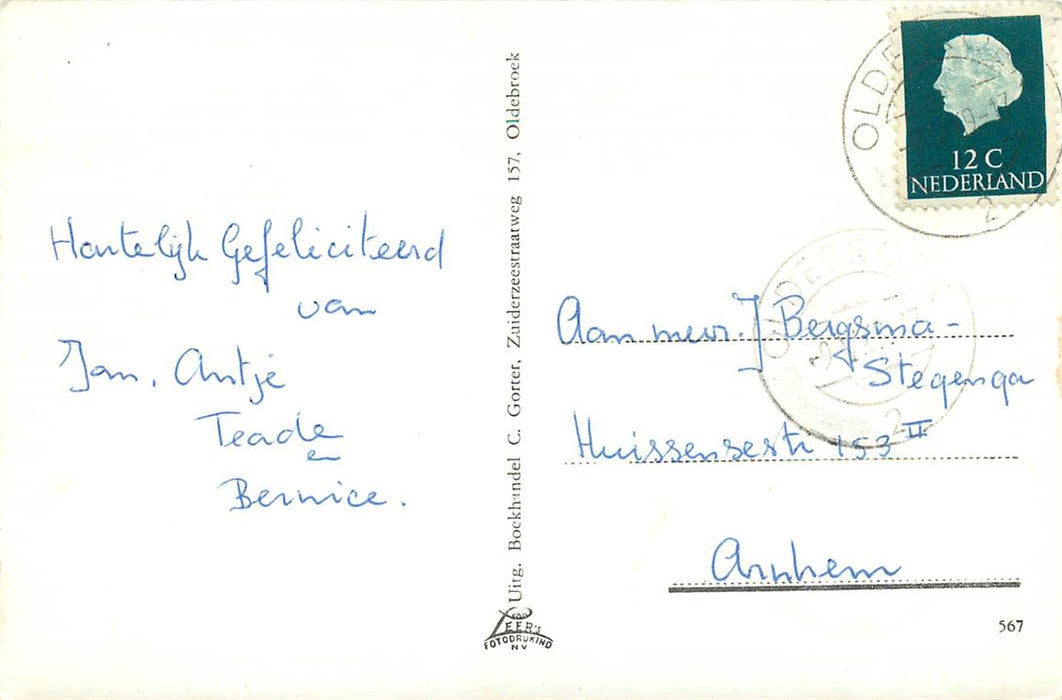 Hartelijk Gefeliciteerd
van
Jan, Antje
Teade
en
Bernice.
Uitg. Boekhandel C. Gorter, Zuiderzeestraatweg 157, Oldebroek
VAN
LEER'S
FOTODRUKIND
NV
12 C
NEDERLAND
2
OLDEBROEK
2
Aan mevr. J Bergsma-
Stegenga
Huissensestr 153 II
Arnhem
567